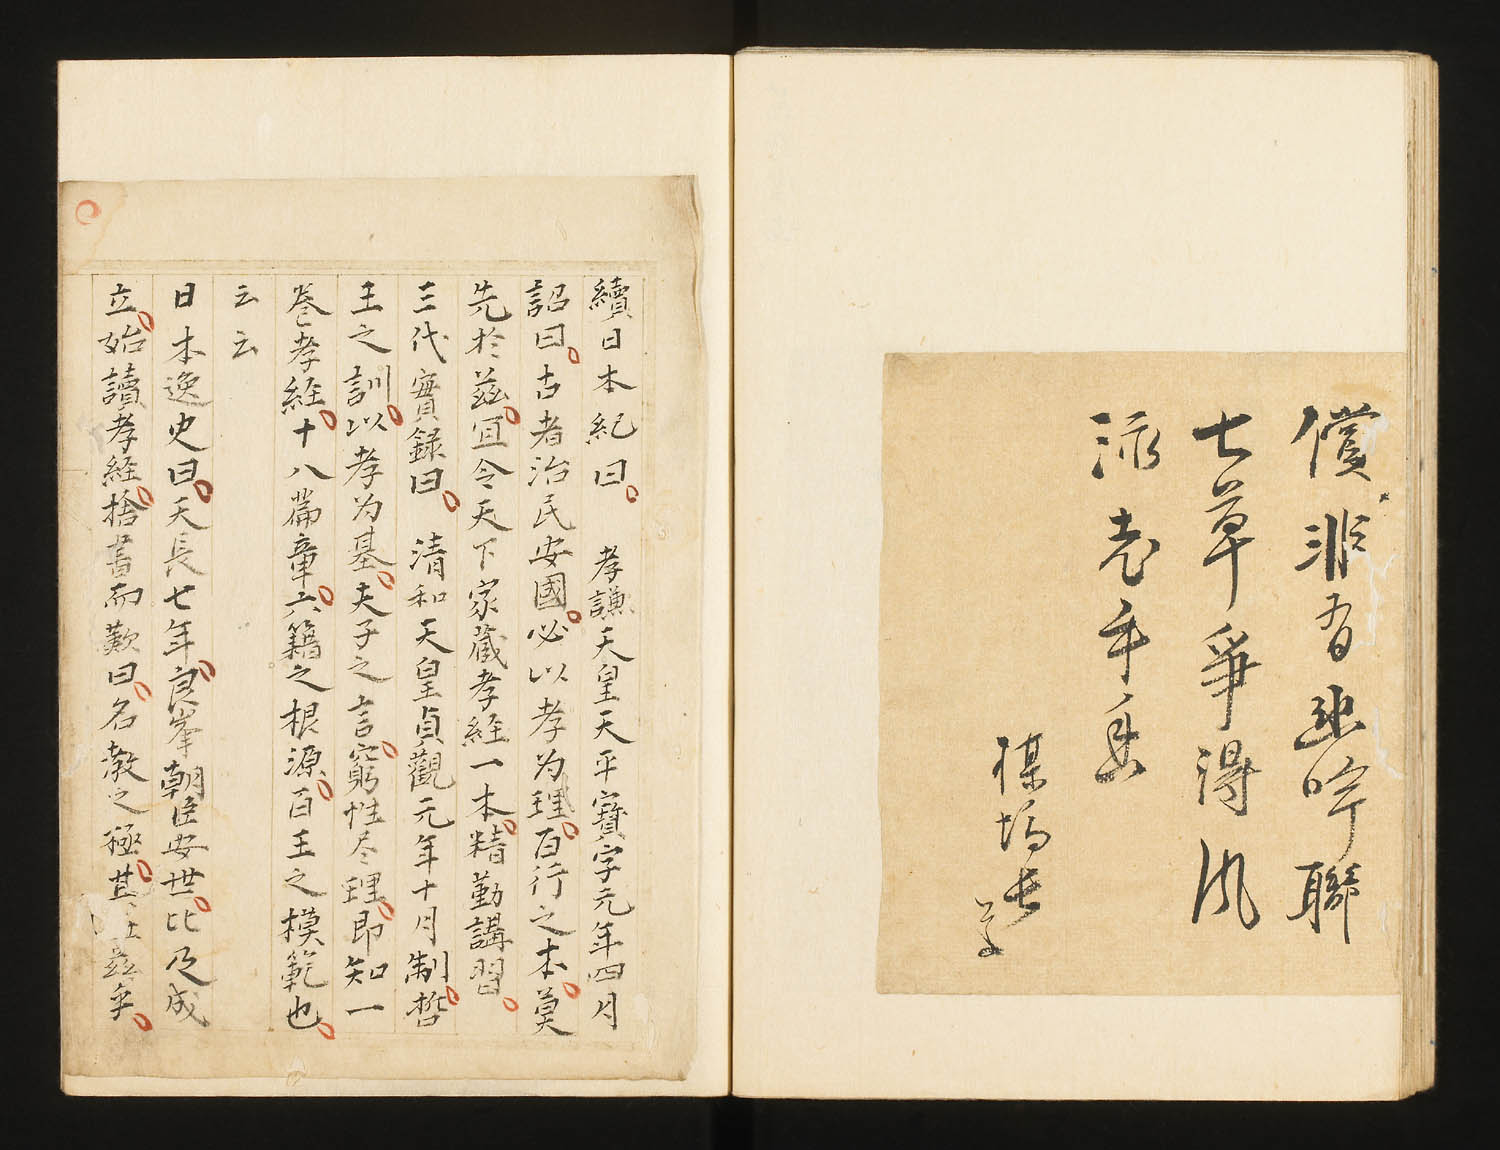 償非有幽吟聯
七草爭得風
泳老手
續日本紀曰孝謙天皇天平寶字元年四月
詔曰古者治民安國必以孝为理百行之本莫
先於茲宜令天下家藏孝経一本精勤講習
三代實録曰清和天皇貞觀元年十月制哲
王之訓以孝为基夫子之言窮性尽理即知一
巻孝経十八篇章六籍之根源百王之模範也
云云
日本逸史曰天長七年良峯朝臣安世比及成
立始讀孝経捨書而歎曰名教之極其在茲乎